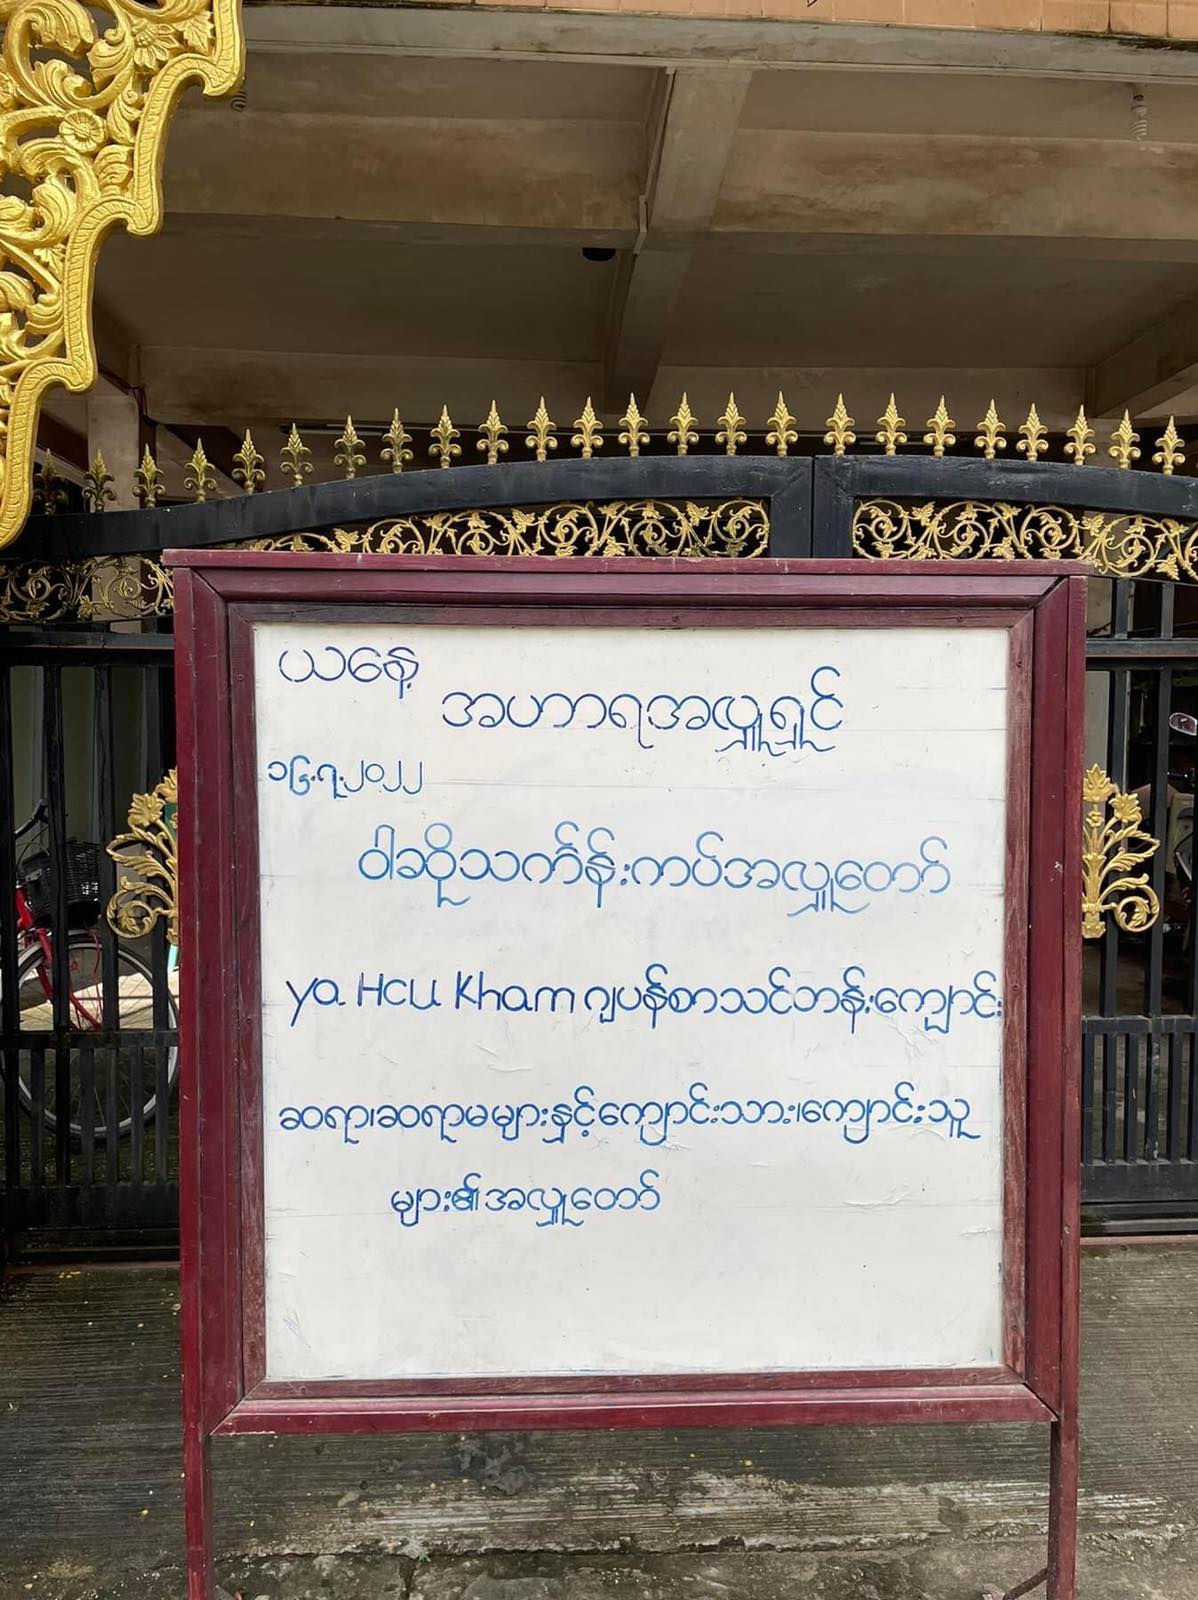 ယနေ့
အဟာရအလှူရှင်
၁၆.၇.၂၀၂၂
ဝါဆိုသင်္ကန်းကပ်အလှူတော်
ya Hcu Kham ဂျပန်စာသင်တန်းကျောင်း
ဆရာ၊ဆရာမများနှင့်ကျောင်းသား၊ကျောင်းသူ
များ၏အလှူတော်